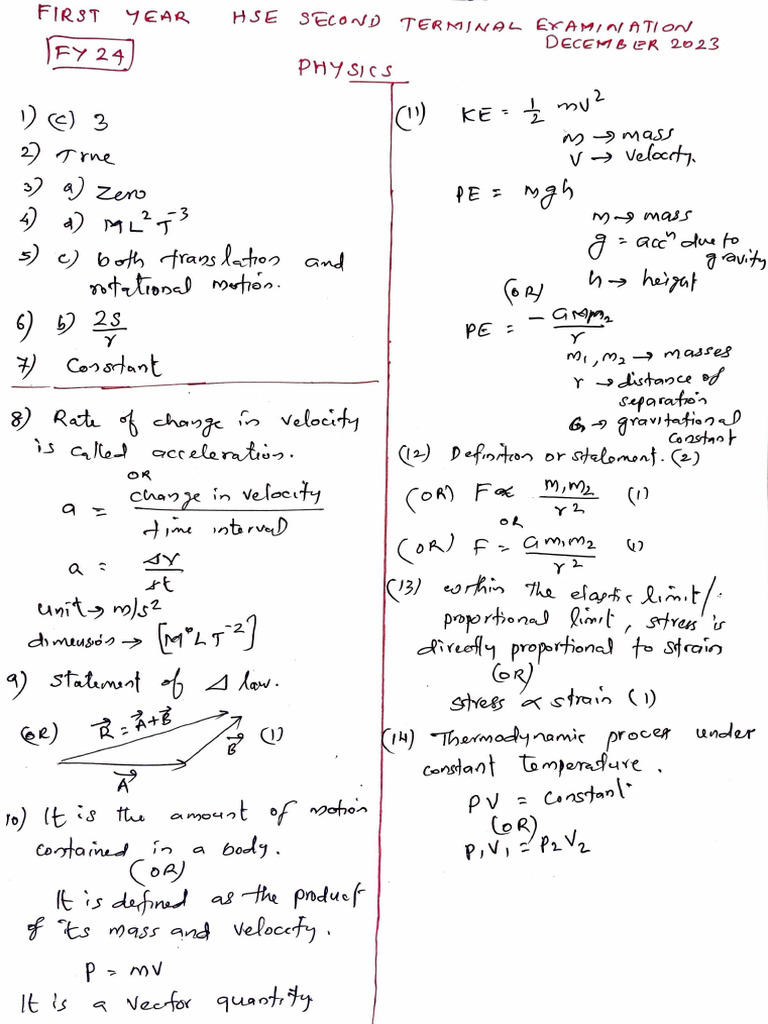 FIRST YEAR HSE SECOND TERMINAL EXAMINATION
DECEMBER 2023
FY 24
PHYSICS
1) (c) 3
2) True
3) a) Zero
4) d) ML²T⁻³
5) c) both translation and
rotational motion.
6) b) 2S/r
7) Constant
8) Rate of change in velocity
is called acceleration.
OR
a = change in velocity / time interval
a = Δv/δt
unit → m/s²
dimension → [M⁰LT⁻²]
9) Statement of Δ law.
(OR) R⃗ = A⃗+B⃗ B⃗ (1)
A⃗
10) It is the amount of motion
contained in a body.
(OR)
It is defined as the product
of its mass and velocity.
P = mv
It is a vector quantity
(11) KE = 1/2 mv²
m → mass
v → velocity.
PE = mgh
m → mass
g = accⁿ due to
gravity
h → height
(OR)
PE = -Gm₁m₂/r
m₁, m₂ → masses
r → distance of
separation
G → gravitational
constant
(12) Definition or statement. (2)
(OR) F ∝ m₁m₂/r² (1)
OR
(OR) F = Gm₁m₂/r² (1)
(13) within the elastic limit/
proportional limit, stress is
directly proportional to strain
(OR)
stress ∝ strain (1)
(14) Thermodynamic proces under
constant temperature.
PV = constant
(OR)
P₁V₁ = P₂V₂